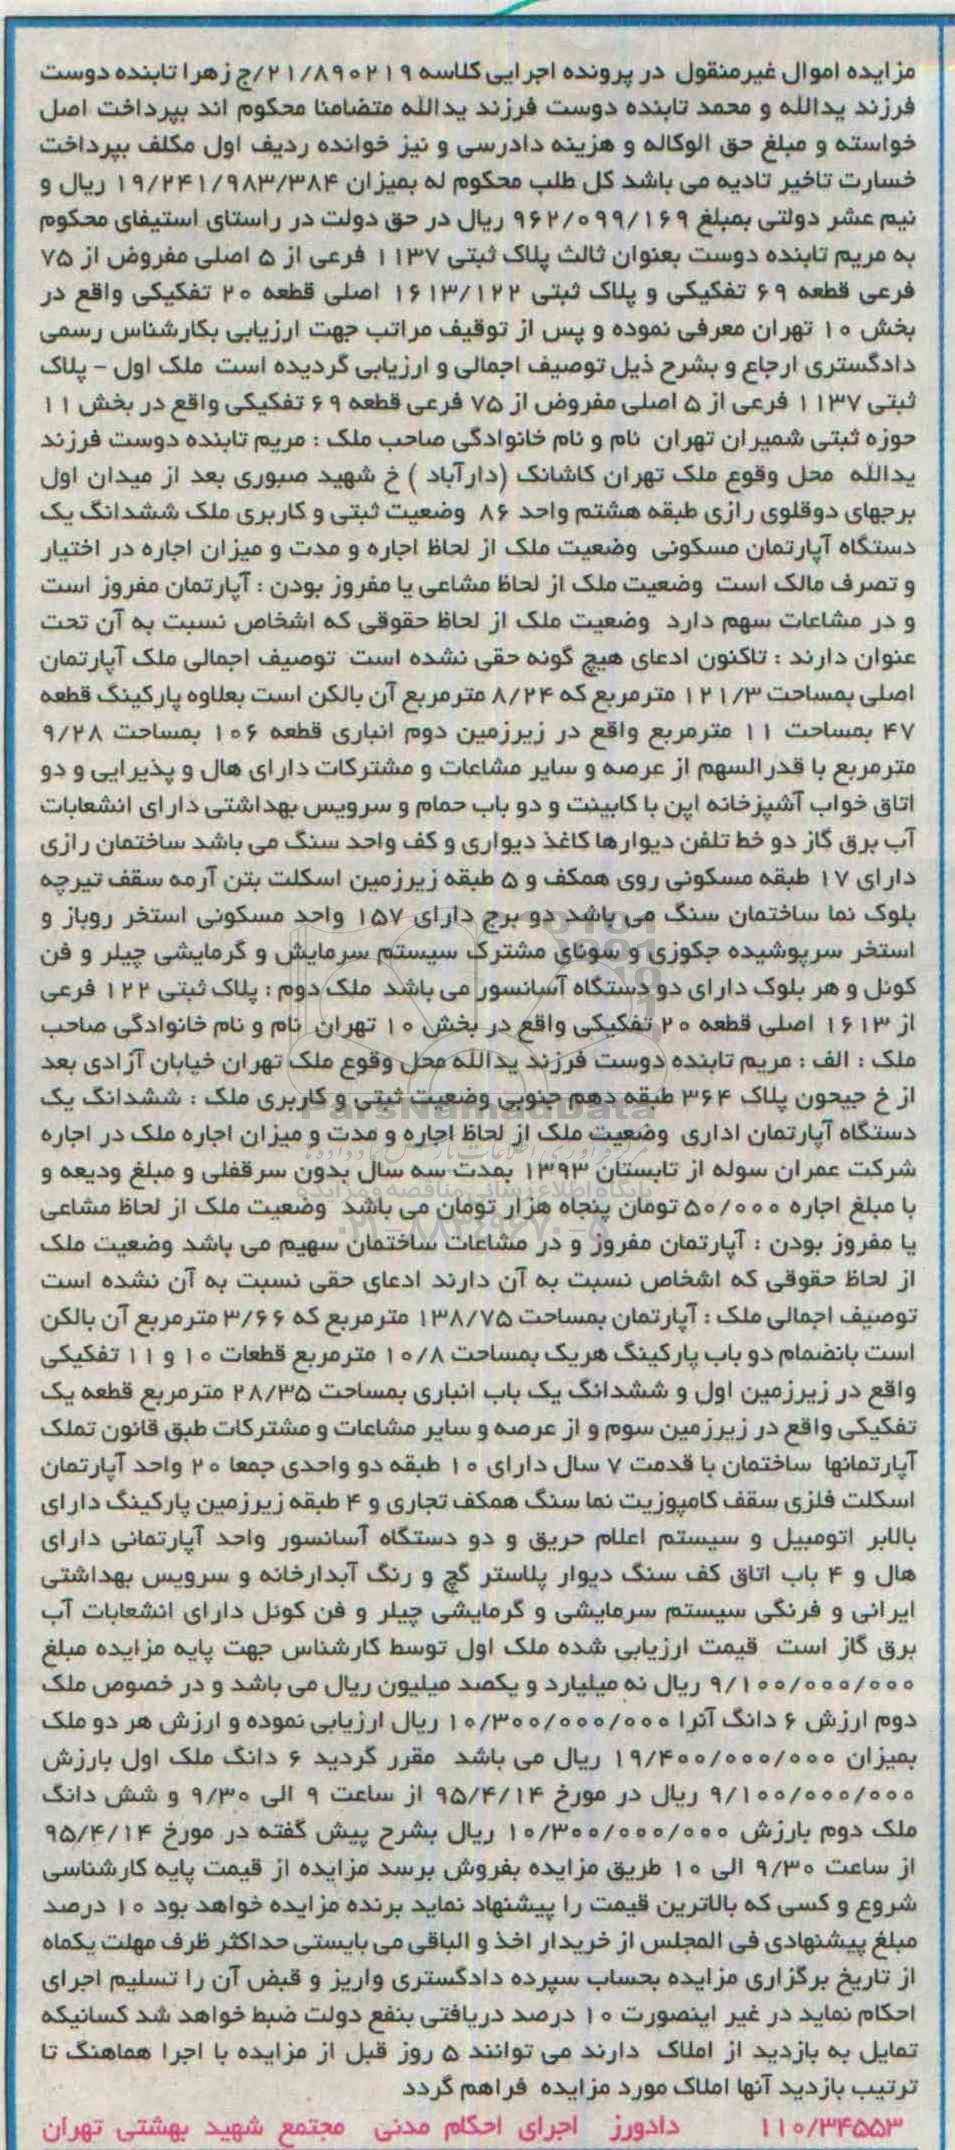 مزایده اموال غیرمنقول در پرونده اجرایی کلاسه ۲۱/۸۹۰۲۱۹/ج زهرا تابنده دوست
فرزند یدالله و محمد تابنده دوست فرزند یدالله متضامنا محکوم اند بپرداخت اصل
خواسته و مبلغ حق الوکاله و هزینه دادرسی و نیز خوانده ردیف اول مکلف بپرداخت
خسارت تاخیر تادیه می باشد کل طلب محکوم له بمیزان ۱۹/۲۴۱/۹۸۳/۳۸۴ ریال و
نیم عشر دولتی بمبلغ ۹۶۲/۰۹۹/۱۶۹ ریال در حق دولت در راستای استیفای محکوم
به مریم تابنده دوست بعنوان ثالث پلاک ثبتی ۱۱۳۷ فرعی از ۵ اصلی مفروض از ۷۵
فرعی قطعه ۶۹ تفکیکی و پلاک ثبتی ۱۶۱۳/۱۲۲ اصلی قطعه ۲۰ تفکیکی واقع در
بخش ۱۰ تهران معرفی نموده و پس از توقیف مراتب جهت ارزیابی بکارشناس رسمی
دادگستری ارجاع و بشرح ذیل توصیف اجمالی و ارزیابی گردیده است ملک اول - پلاک
ثبتی ۱۱۳۷ فرعی از ۵ اصلی مفروض از ۷۵ فرعی قطعه ۶۹ تفکیکی واقع در بخش ۱۱
حوزه ثبتی شمیران تهران نام و نام خانوادگی صاحب ملک : مریم تابنده دوست فرزند
یدالله محل وقوع ملک تهران کاشانک (دارآباد ) خ شهید صبوری بعد از میدان اول
برجهای دوقلوی رازی طبقه هشتم واحد ۸۶ وضعیت ثبتی و کاربری ملک ششدانگ یک
دستگاه آپارتمان مسکونی وضعیت ملک از لحاظ اجاره و مدت و میزان اجاره در اختیار
و تصرف مالک است وضعیت ملک از لحاظ مشاعی یا مفروز بودن : آپارتمان مفروز است
و در مشاعات سهم دارد وضعیت ملک از لحاظ حقوقی که اشخاص نسبت به آن تحت
عنوان دارند : تاکنون ادعای هیچ گونه حقی نشده است توصیف اجمالی ملک آپارتمان
اصلی بمساحت ۱۲۱/۳ مترمربع که ۸/۲۴ مترمربع آن بالکن است بعلاوه پارکینگ قطعه
۴۷ بمساحت ۱۱ مترمربع واقع در زیرزمین دوم انباری قطعه ۱۰۶ بمساحت ۹/۲۸
مترمربع با قدرالسهم از عرصه و سایر مشاعات و مشترکات دارای هال و پذیرایی و دو
اتاق خواب آشپزخانه اپن با کابینت و دو باب حمام و سرویس بهداشتی دارای انشعابات
آب برق گاز دو خط تلفن دیوارها کاغذ دیواری و کف واحد سنگ می باشد ساختمان رازی
دارای ۱۷ طبقه مسکونی روی همکف و ۵ طبقه زیرزمین اسکلت بتن آرمه سقف تیرچه
بلوک نما ساختمان سنگ می باشد دو برج دارای ۱۵۷ واحد مسکونی استخر روباز و
استخر سرپوشیده جکوزی و سونای مشترک سیستم سرمایش و گرمایشی چیلر و فن
کوئل و هر بلوک دارای دو دستگاه آسانسور می باشد ملک دوم : پلاک ثبتی ۱۲۲ فرعی
از ۱۶۱۳ اصلی قطعه ۲۰ تفکیکی واقع در بخش ۱۰ تهران نام و نام خانوادگی صاحب
ملک : الف : مریم تابنده دوست فرزند یدالله محل وقوع ملک تهران خیابان آزادی بعد
از خ جیحون پلاک ۳۶۴ طبقه دهم جنوبی وضعیت ثبتی و کاربری ملک : ششدانگ یک
دستگاه آپارتمان اداری وضعیت ملک از لحاظ اجاره و مدت و میزان اجاره ملک در اجاره
شرکت عمران سوله از تابستان ۱۳۹۳ بمدت سه سال بدون سرقفلی و مبلغ ودیعه و
با مبلغ اجاره ۵۰/۰۰۰ تومان پنجاه هزار تومان می باشد وضعیت ملک از لحاظ مشاعی
یا مفروز بودن : آپارتمان مفروز و در مشاعات ساختمان سهیم می باشد وضعیت ملک
از لحاظ حقوقی که اشخاص نسبت به آن دارند ادعای حقی نسبت به آن نشده است
توصیف اجمالی ملک : آپارتمان بمساحت ۱۳۸/۷۵ مترمربع که ۳/۶۶ مترمربع آن بالکن
است بانضمام دو باب پارکینگ هریک بمساحت ۱۰/۸ مترمربع قطعات ۱۰ و ۱۱ تفکیکی
واقع در زیرزمین اول و ششدانگ یک باب انباری بمساحت ۲۸/۳۵ مترمربع قطعه یک
تفکیکی واقع در زیرزمین سوم و از عرصه و سایر مشاعات و مشترکات طبق قانون تملک
آپارتمانها ساختمان با قدمت ۷ سال دارای ۱۰ طبقه دو واحدی جمعا ۲۰ واحد آپارتمان
اسکلت فلزی سقف کامپوزیت نما سنگ همکف تجاری و ۴ طبقه زیرزمین پارکینگ دارای
بالابر اتومبیل و سیستم اعلام حریق و دو دستگاه آسانسور واحد آپارتمانی دارای
هال و ۴ باب اتاق کف سنگ دیوار پلاستر گچ و رنگ آبدارخانه و سرویس بهداشتی
ایرانی و فرنگی سیستم سرمایشی و گرمایشی چیلر و فن کوئل دارای انشعابات آب
برق گاز است قیمت ارزیابی شده ملک اول توسط کارشناس جهت پایه مزایده مبلغ
۹/۱۰۰/۰۰۰/۰۰۰ ریال نه میلیارد و یکصد میلیون ریال می باشد و در خصوص ملک
دوم ارزش ۶ دانگ آنرا ۱۰/۳۰۰/۰۰۰/۰۰۰ ریال ارزیابی نموده و ارزش هر دو ملک
بمیزان ۱۹/۴۰۰/۰۰۰/۰۰۰ ریال می باشد مقرر گردید ۶ دانگ ملک اول بارزش
۹/۱۰۰/۰۰۰/۰۰۰ ریال در مورخ ۹۵/۴/۱۴ از ساعت ۹ الی ۹/۳۰ و شش دانگ
ملک دوم بارزش ۱۰/۳۰۰/۰۰۰/۰۰۰ ریال بشرح پیش گفته در مورخ ۹۵/۴/۱۴
از ساعت ۹/۳۰ الی ۱۰ طریق مزایده بفروش برسد مزایده از قیمت پایه کارشناسی
شروع و کسی که بالاترین قیمت را پیشنهاد نماید برنده مزایده خواهد بود ۱۰ درصد
مبلغ پیشنهادی فی المجلس از خریدار اخذ و الباقی می بایستی حداکثر ظرف مهلت یکماه
از تاریخ برگزاری مزایده بحساب سپرده دادگستری واریز و قبض آن را تسلیم اجرای
احکام نماید در غیر اینصورت ۱۰ درصد دریافتی بنفع دولت ضبط خواهد شد کسانیکه
تمایل به بازدید از املاک دارند می توانند ۵ روز قبل از مزایده با اجرا هماهنگ تا
ترتیب بازدید آنها املاک مورد مزایده فراهم گردد
۱۱۰/۳۴۵۵۳ دادورز اجرای احکام مدنی مجتمع شهید بهشتی تهران